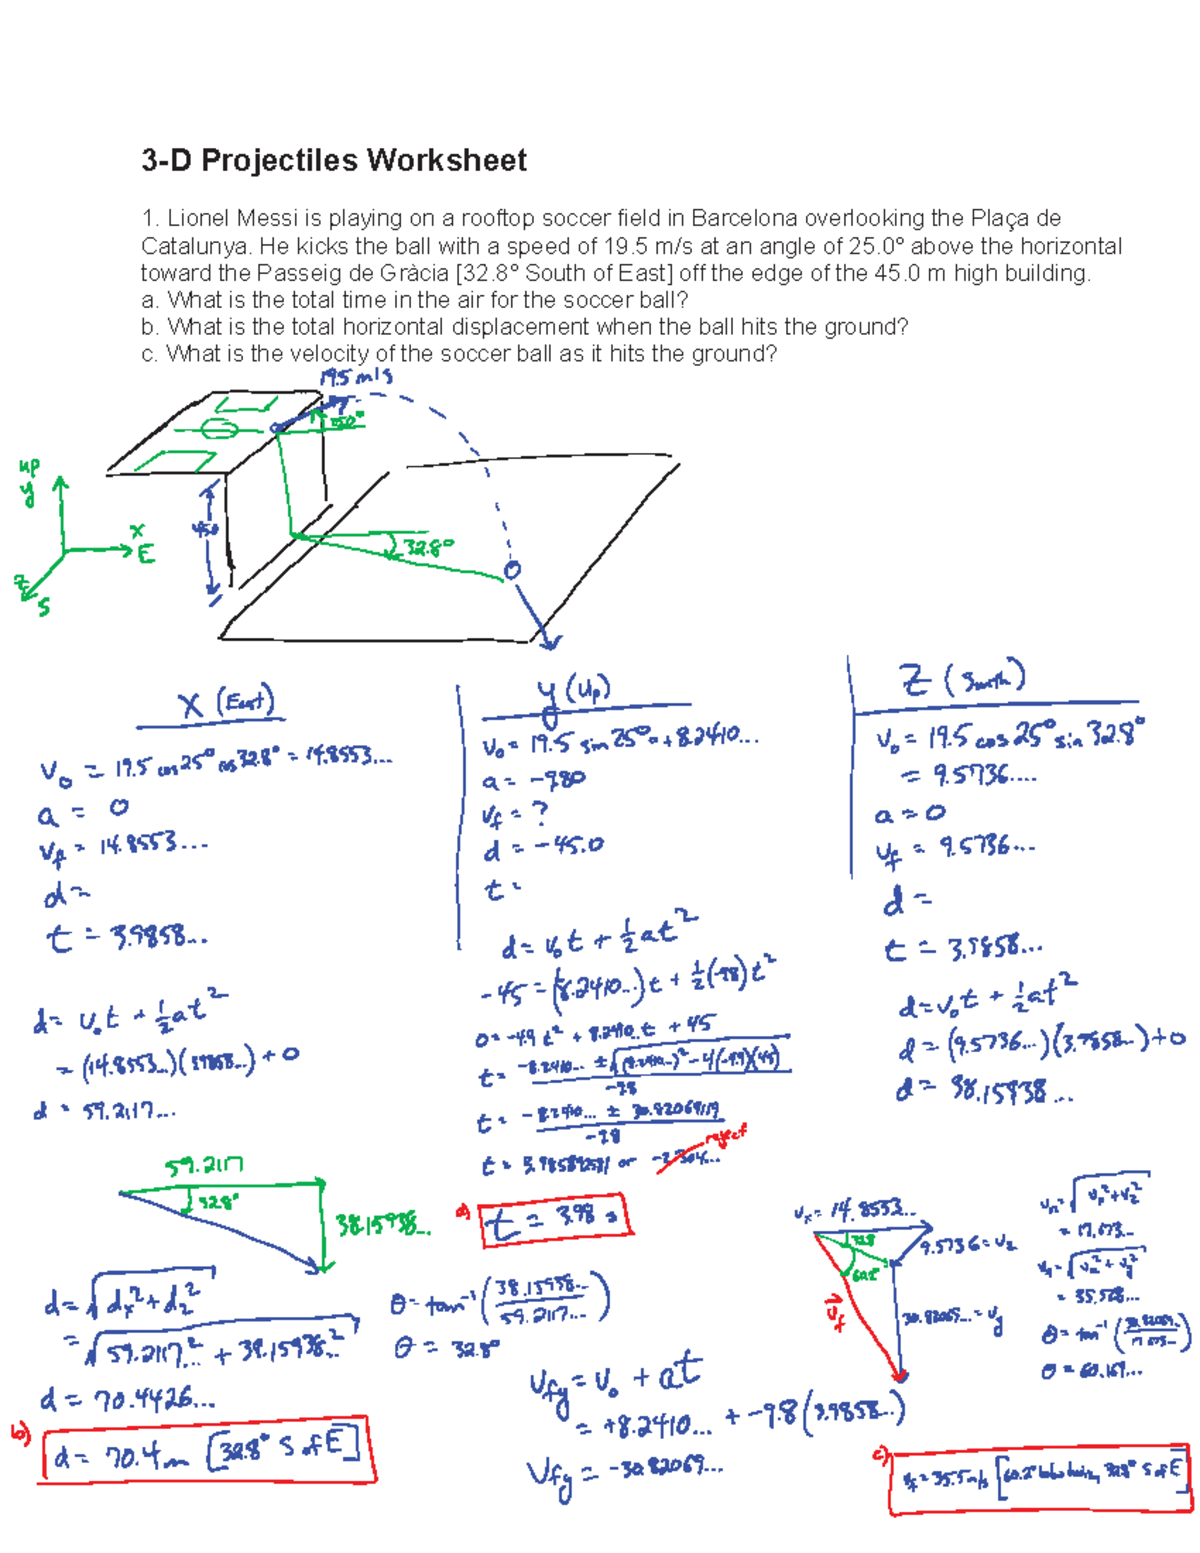 3-D Projectiles Worksheet
1. Lionel Messi is playing on a rooftop soccer field in Barcelona overlooking the Plaça de
Catalunya. He kicks the ball with a speed of 19.5 m/s at an angle of 25.0° above the horizontal
toward the Passeig de Gràcia [32.8° South of East] off the edge of the 45.0 m high building.
a. What is the total time in the air for the soccer ball?
b. What is the total horizontal displacement when the ball hits the ground?
c. What is the velocity of the soccer ball as it hits the ground?
19.5 m/s
up
y
x
E
z
S
45.0
32.8°
x (East)
v₀ = 19.5 cos25° cos32.8° = 14.8553...
a = 0
vf = 14.8553...
d =
t = 3.9858...
d = v₀t + ½at²
= (14.8553...)(3.9858...) + 0
d = 59.2117...
y (Up)
v₀ = 19.5 sin25° = +8.2410...
a = -9.80
vf = ?
d = -45.0
t =
d = v₀t + ½at²
-45 = (8.2410...)t + ½(-9.8)t²
0 = -4.9t² + 8.2410...t + 45
t = -8.2410... ± √(8.2410...)² - 4(-4.9)(45) / -9.8
t = -8.2410... ± 30.82069119 / -9.8
t = 3.98589258 or -2.304...
reject
a) t = 3.98 s
z (South)
v₀ = 19.5 cos25° sin32.8°
= 9.5736....
a = 0
vf = 9.5736...
d =
t = 3.9858...
d = v₀t + ½at²
d = (9.5736...)(3.9858...) + 0
d = 38.15938...
59.2117
32.8°
38.15938...
d = √dx² + dz²
= √59.2117...² + 38.15938...²
d = 70.4426...
b) d = 70.4 m [32.8° S of E]
θ = tan⁻¹(38.15938.../59.2117...)
θ = 32.8°
vfy = v₀ + at
= +8.2410... + -9.8(3.9858...)
vfy = -30.82069...
vx = 14.8553...
32.8
9.5736 = vz
60.2°
vf
30.82069... = vy
vh = √vx² + vz²
= 17.673...
vf = √vh² + vy²
= 35.528...
θ = tan⁻¹(30.82069.../17.673...)
θ = 60.169...
c) vf = 35.5 m/s [60.2° below horiz, 32.8° S of E]